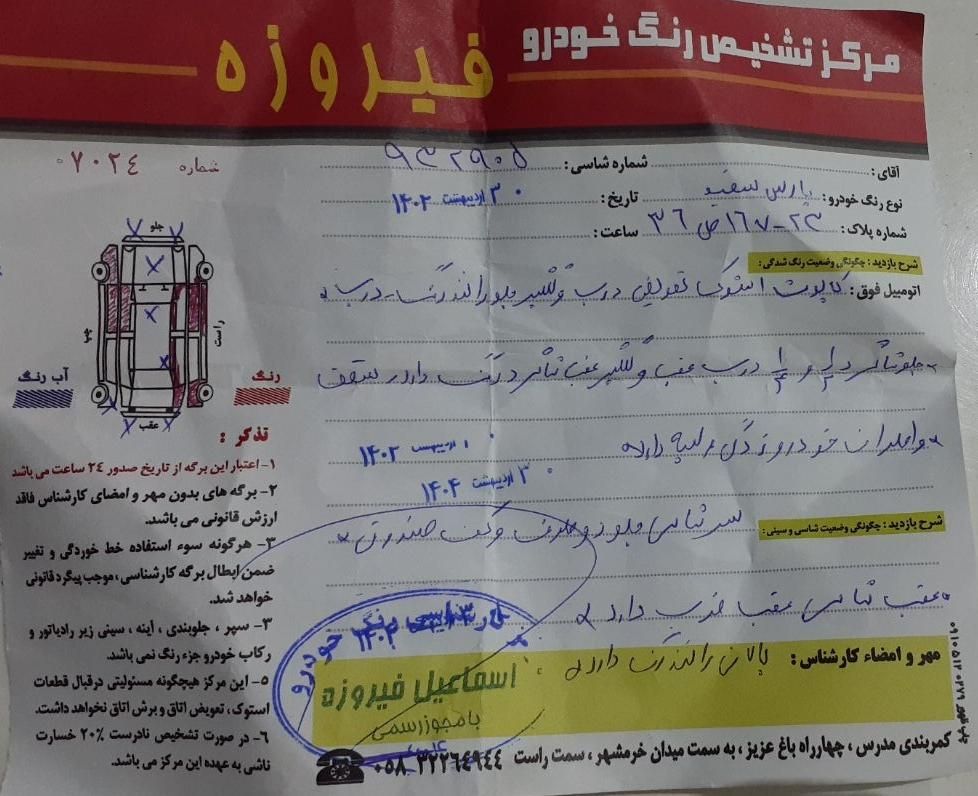 مرکز تشخیص رنگ خودرو فیروزه
شماره ۷۰۲۴۰
آقای: شماره شاسی: ۹۳۲۹۰۵
نوع رنگ خودرو: پارس سفید تاریخ: ۳۰ اردیبهشت ۱۴۰۲
شماره پلاک: ۲۳-۱۶۷ ص ۳۶ ساعت:
شرح بازدید: چگونگی وضعیت رنگ شدگی:
اتومبیل فوق: کاپوت استوک تعویض درب و گلگیر جلو راننده رنگ - درب
جلو شاگرد ۱/۲ و ۱/۲ درب عقب و گلگیر عقب شاگرد رنگ دارد سقف
و اطراف خودرو لیه دارد
۱۰ اردیبهشت ۱۴۰۲
۳۰ اردیبهشت ۱۴۰۴
شرح بازدید: چگونگی وضعیت شاسی و سینی: سر شاسی جلو و کف صندوق
عقب شاسی عقب ضرب دارد
مهر و امضاء کارشناس: پالان راننده رنگ دارد
کارشناسی رنگ خودرو
اسماعیل فیروزه
با مجوز رسمی
جلو
چپ
راست
عقب
رنگ
آب رنگ
تذکر :
۱- اعتبار این برگه از تاریخ صدور ۲۴ ساعت می باشد
۲- برگه های بدون مهر و امضای کارشناس فاقد
ارزش قانونی می باشد.
۳- هرگونه سوء استفاده خط خوردگی و تغییر
ضمن ابطال برگه کارشناسی، موجب پیگرد قانونی
خواهد شد.
۳- سپر ، جلوبندی ، آینه ، سینی زیر رادیاتور و
رکاب خودرو جزء رنگ نمی باشد.
۵- این مرکز هیچگونه مسئولیتی درقبال قطعات
استوک، تعویض اتاق و برش اتاق نخواهد داشت.
۶- در صورت تشخیص نادرست ۲۰٪ خسارت
ناشی به عهده این مرکز می باشد.
کمربندی مدرس ، چهارراه باغ عزیز ، به سمت میدان خرمشهر ، سمت راست ۳۲۲۶۴۹۴۴ ۰۵۸